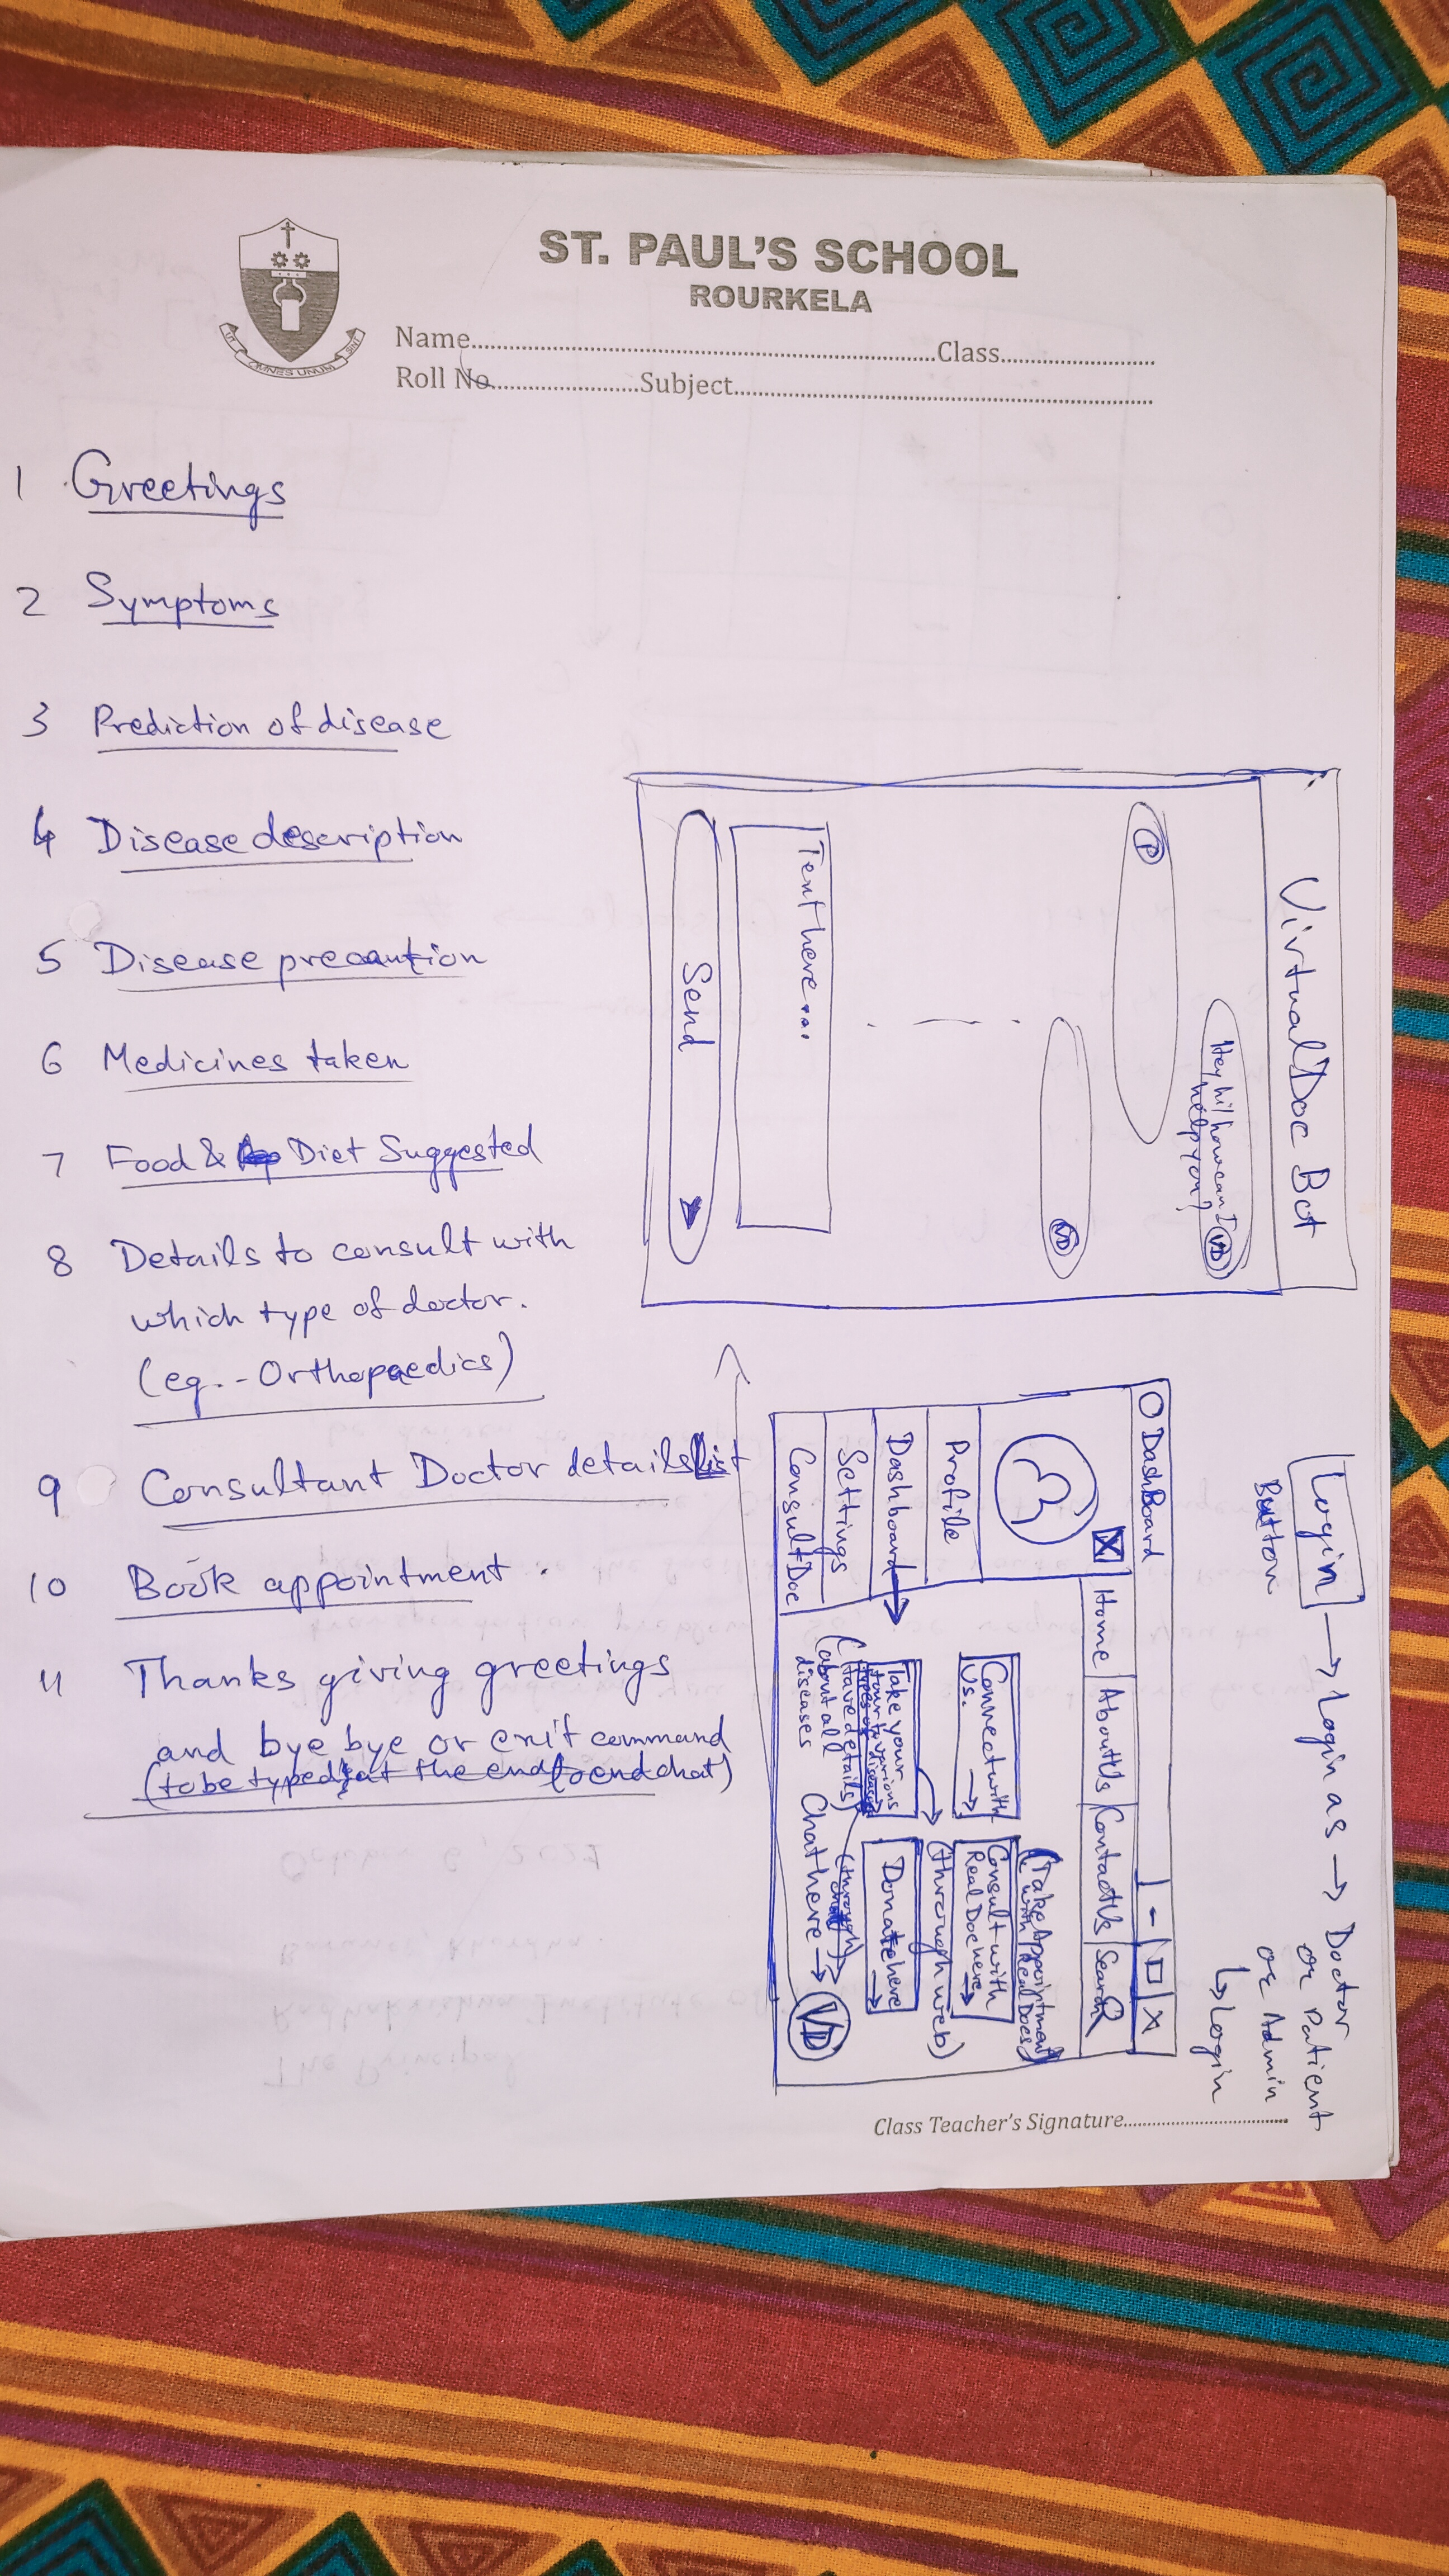 ST. PAUL'S SCHOOL
ROURKELA
Name Class
Roll No. Subject
1 Greetings
2 Symptoms
3 Prediction of disease
4 Disease description
5 Disease precaution
6 Medicines taken
7 Food & Diet Suggested
8 Details to consult with
which type of doctor.
(eg.- Orthopaedics)
9 Consultant Doctor details list
10 Book appointment.
11 Thanks giving greetings
and bye bye or exit command
(to be typed at the end to end chat)
VirtualDoc Bot
Hey hi! how can I
help you?
VD
P
VD
Text here...
Send
Login → Login as → Doctor
Button
or Patient
or Admin
↳ Login
DashBoard - X
X
Home AboutUs ContactUs Search
Profile
Dashboard →
Settings
ConsultDoc
(Take Appointment
with Real Docs)
Connect with
Us. →
Consult with
Real Doc here →
(through web)
Take your
tour to various
types of diseases
(Have details)
(about all
diseases
Donate here →
(through
chat)
Chat here → VD
Class Teacher's Signature